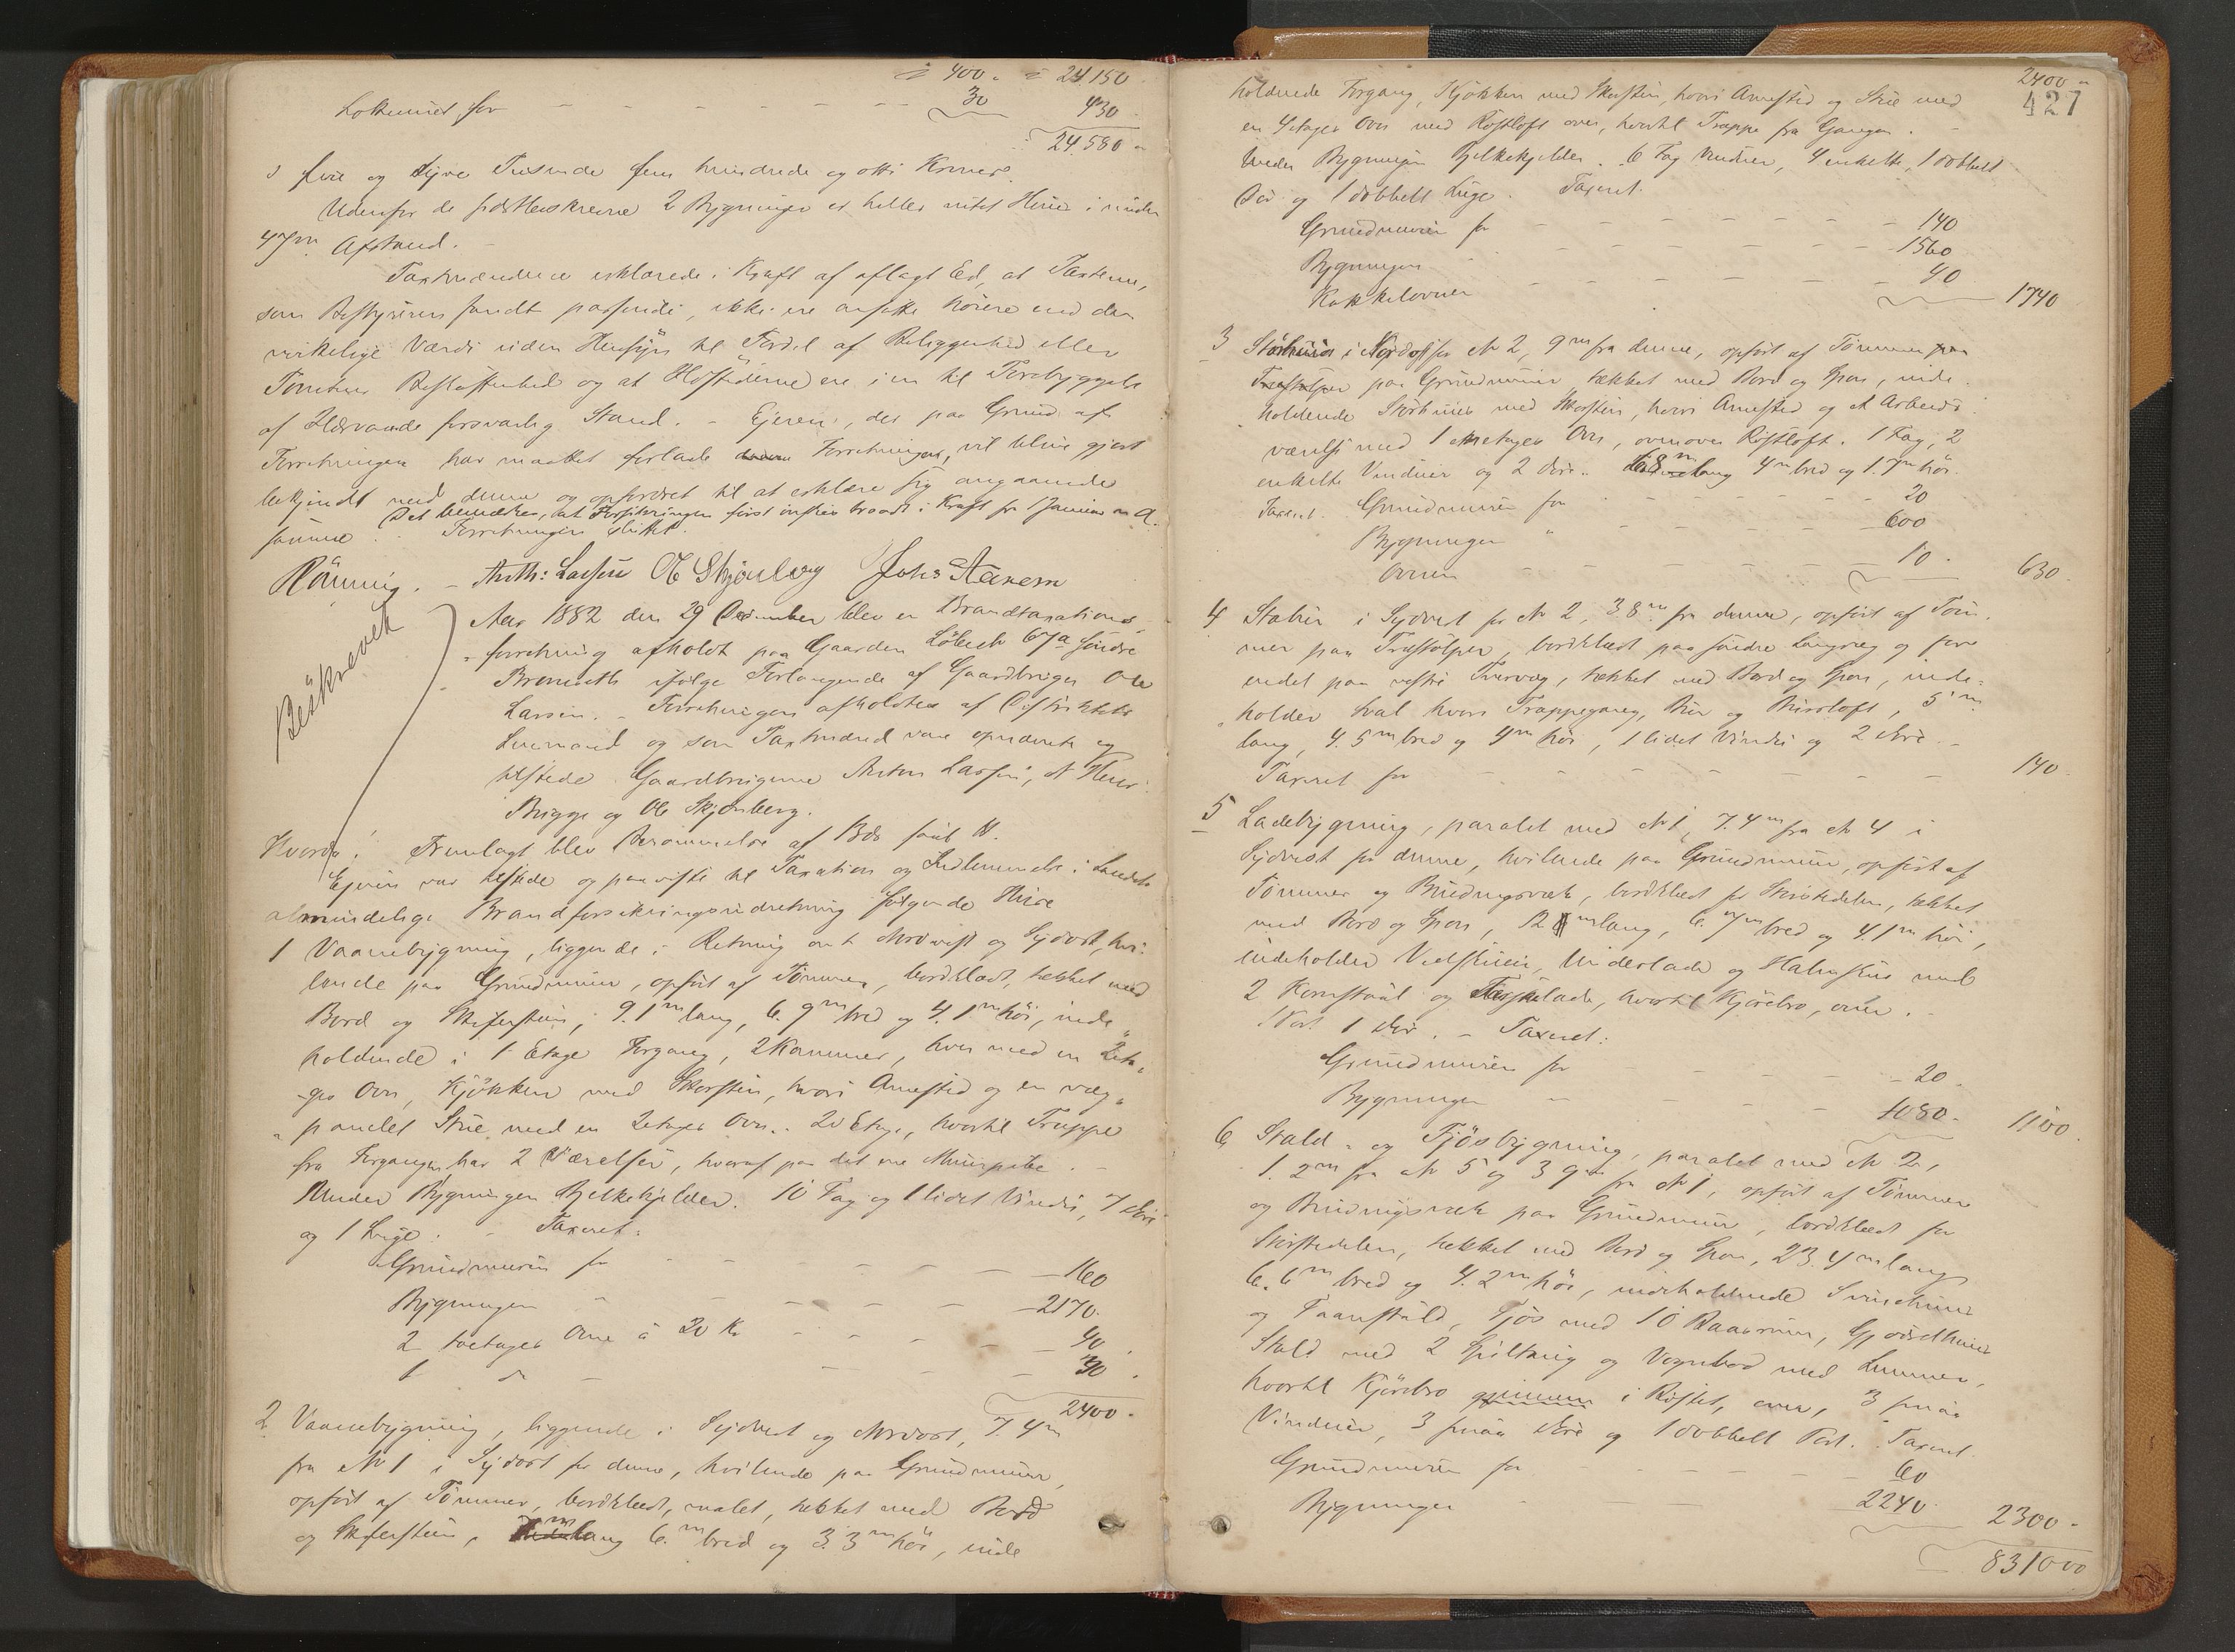 400. = 24.150
Lokummet for - - - - - - - - 30 430.
24.580.
= fire og tyve Tusinde fem hundrede og otti Kroner.
Udenfor de sidstbeskrevne 2 Bygninger er heller intet Huus i under
47m Afstand. -
Taxtmændene erklærede i Kraft af aflagt Ed, at Taxterne,
som Bestyreren fandt passende, ikke ere ansatte høiere end den
virkelige Værdi uden Hensyn til Fordel af Beliggenhed eller
Tomtens Beskaffenhed og at Ildstederne ere i en til Forebyggelse
af Ildsvaade forsvarlig Stand. - Ejeren, der paa Grund af
Forretningen har maattet forlade Forretningen, vil blive gjort
bekjendt med denne og opfordret til at erklære sig angaaende
Det bemærkes, at Forsikringen først ønskes traadt i Kraft fra 1 Januar n. A.
samme. - Forretningen sluttet.
Rönning. - Anth: Larsen O Skjönberg Johs Aanesen
Beskrevet
Aar 1882 den 29 December blev en Brandtaxations-
forretning afholdt paa Gaarden Löbech 67a söndre
ifølge Forlangende af Gaardbruger Ole
Larsen. - Forretningen afholdtes af Distriktets
Lensmand og som Taxtmænd vare opnævnte og
tilstede Gaardbrugerne Anton Larsen, A
Brygge og Ole Skjönberg.
Hvorda: Fremlagt blev Berammelse af Bds saal.
Ejeren var tilstede og paaviste til Taxation og Indlemmelse i Landets
almindelige Brandforsikringsindretning følgende Huse
1 Vaanebygning, liggende i Retning omt Nordvest og Sydost, hvi-
lende paa Grundmuur, opført af Tømmer, bordklædt, tækket med
Bord og Skifersteen, 9.1m lang, 6.9m bred og 4.1m høi, inde-
holdende i 1 Etage Forgang, 2 Kammer, hver med en 2eta-
ges Ovn, Kjøkken med Skorsten, hvori Arnested og en væg-
panelet Stue med en 2etages Ovn. 2d Etage, hvortil Trappe
fra Forgangen har 2 Værelser, hvoraf paa det ene Muurpibe. -
Under Bygningen Bjelkekjelder. 10 Fag og 1 lidet Vindu, 7 Döre
og 1 Luge. - Taxeret:
Grundmuren for - - - - - - 160
Bygningen " - - - - - 2170.
2 toetages Ovne à 20 Kr - - - - - 40.
1 do - - - - 30.
2400.
2 Vaanebygning, liggende i Sydvest og Nordost, 7.4m
fra No 1 i Sydost for denne, hvilende paa Grundmuur,
opført af Tømmer, bordklædt, malet, tækket med Bord
og Skifersteen, lang 6.m bred og 3.3m høi, inde
2400 "
427
holdende Forgang, Kjøkken med Skorsten, hvori Arnested og Stue med
en 4etages Ovn med Röstloft over, hvortil Trappe fra Gangen. -
Under Bygningen Bjelkekjelder. 6 Fag Vinduer, 4 enkelte, 1 dobbelt
Dör og 1 dobbelt Luge. Taxeret.
Grundmuren for - - - - - - 140
Bygningen - - - - - - 1560
Kakkelovnen - - - - - 40
1740
3 Störhuus i Nordost for No 2, 9m fra denne, opført af Tømmer paa
Træstolper paa Grundmuur tækket med Bord og Spon, inde-
holdende Störhuus med Skorsten, hvori Arnested og et Arbeids-
værelse med 1 enetages Ovn, ovenover Röstloft. 1 Fag, 2
enkelte Vinduer og 2 Döre. lang 4m bred og 1.7m høi.
Taxeret. Grundmuren for - - - - - - 20
Bygningen " - - - - - 600
Ovnen - - - - - - 10. 630.
4 Stabur i Sydvest for No 2, 38m fra denne, opført af Töm-
mer paa Træstolper, bordklædt paa søndre Langvæg og for
endel paa vestre Tvervæg, tækket med Bord og Spon, inde-
holder Sval hvori Trappegang, Bur og Buursloft, 5m
lang, 4.5m bred og 4m høi, 1 lidet Vindu og 2 Döre. -
Taxeret for - - - - - - - - - 140.
5 Ladebygning, paralel med No 1, 7.4m fra No 4 i
Sydvest for denne, hvilende paa Grundmuur, opført af
Tømmer og Bindingsværk, bordklædt for Størstedelen, tækket
med Bord og Spon, 12 m lang, 6.7m bred og 4.1m høi,
indeholder Vedskuur, Underlade og Halmskur med
2 Kornstaal og Tærskelade, hvortil Kjørebro, over. -
1 Port 1 Dör. - Taxeret:
Grundmuren for - - - - 20.
Bygningen - - - - 1080. 1100.
6 Stald- og Fjösbygning, paralel med No 2,
1.2m fra No 5 og 39m fra No 1, opført af Tømmer
og Bindingsværk paa Grundmuur, bordklædt for
Størstedelen, tækket med Bord og Spon, 23.4m lang,
6.6m bred og 4.2m høi, indeholdende Sviinehuus
og Faarestald, Fjös med 10 Baasrum, Gjødselhuus
Stald med 2 Spiltoug og Vognbod med Lemmer,
hvortil Kjörebro i Röstet, over, 3 smaa
Vinduer, 3 smaa Döre og 1 dobbelt Port. Taxeret.
Grundmuren for - - - - - 60
Bygningen - - - 2240. 2300.
831000